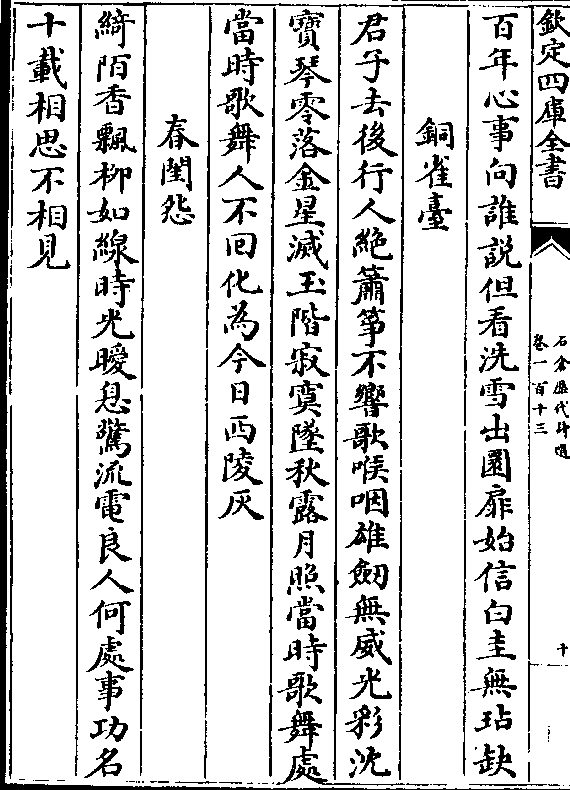 欽定四庫全書
石倉歷代詩選
卷一百十三
十
百年心事向誰説但看洗雪出圜扉始信白圭無玷缺
銅雀臺
君子去後行人絶簫筝不響歌喉咽雄劒無威光彩沈
寳琴零落金星滅玉階寂寞墜秋露月照當時歌舞處
當時歌舞人不回化為今日西陵灰
春閨怨
綺陌香飄栁如線時光暧息驚流電良人何處事功名
十載相思不相見